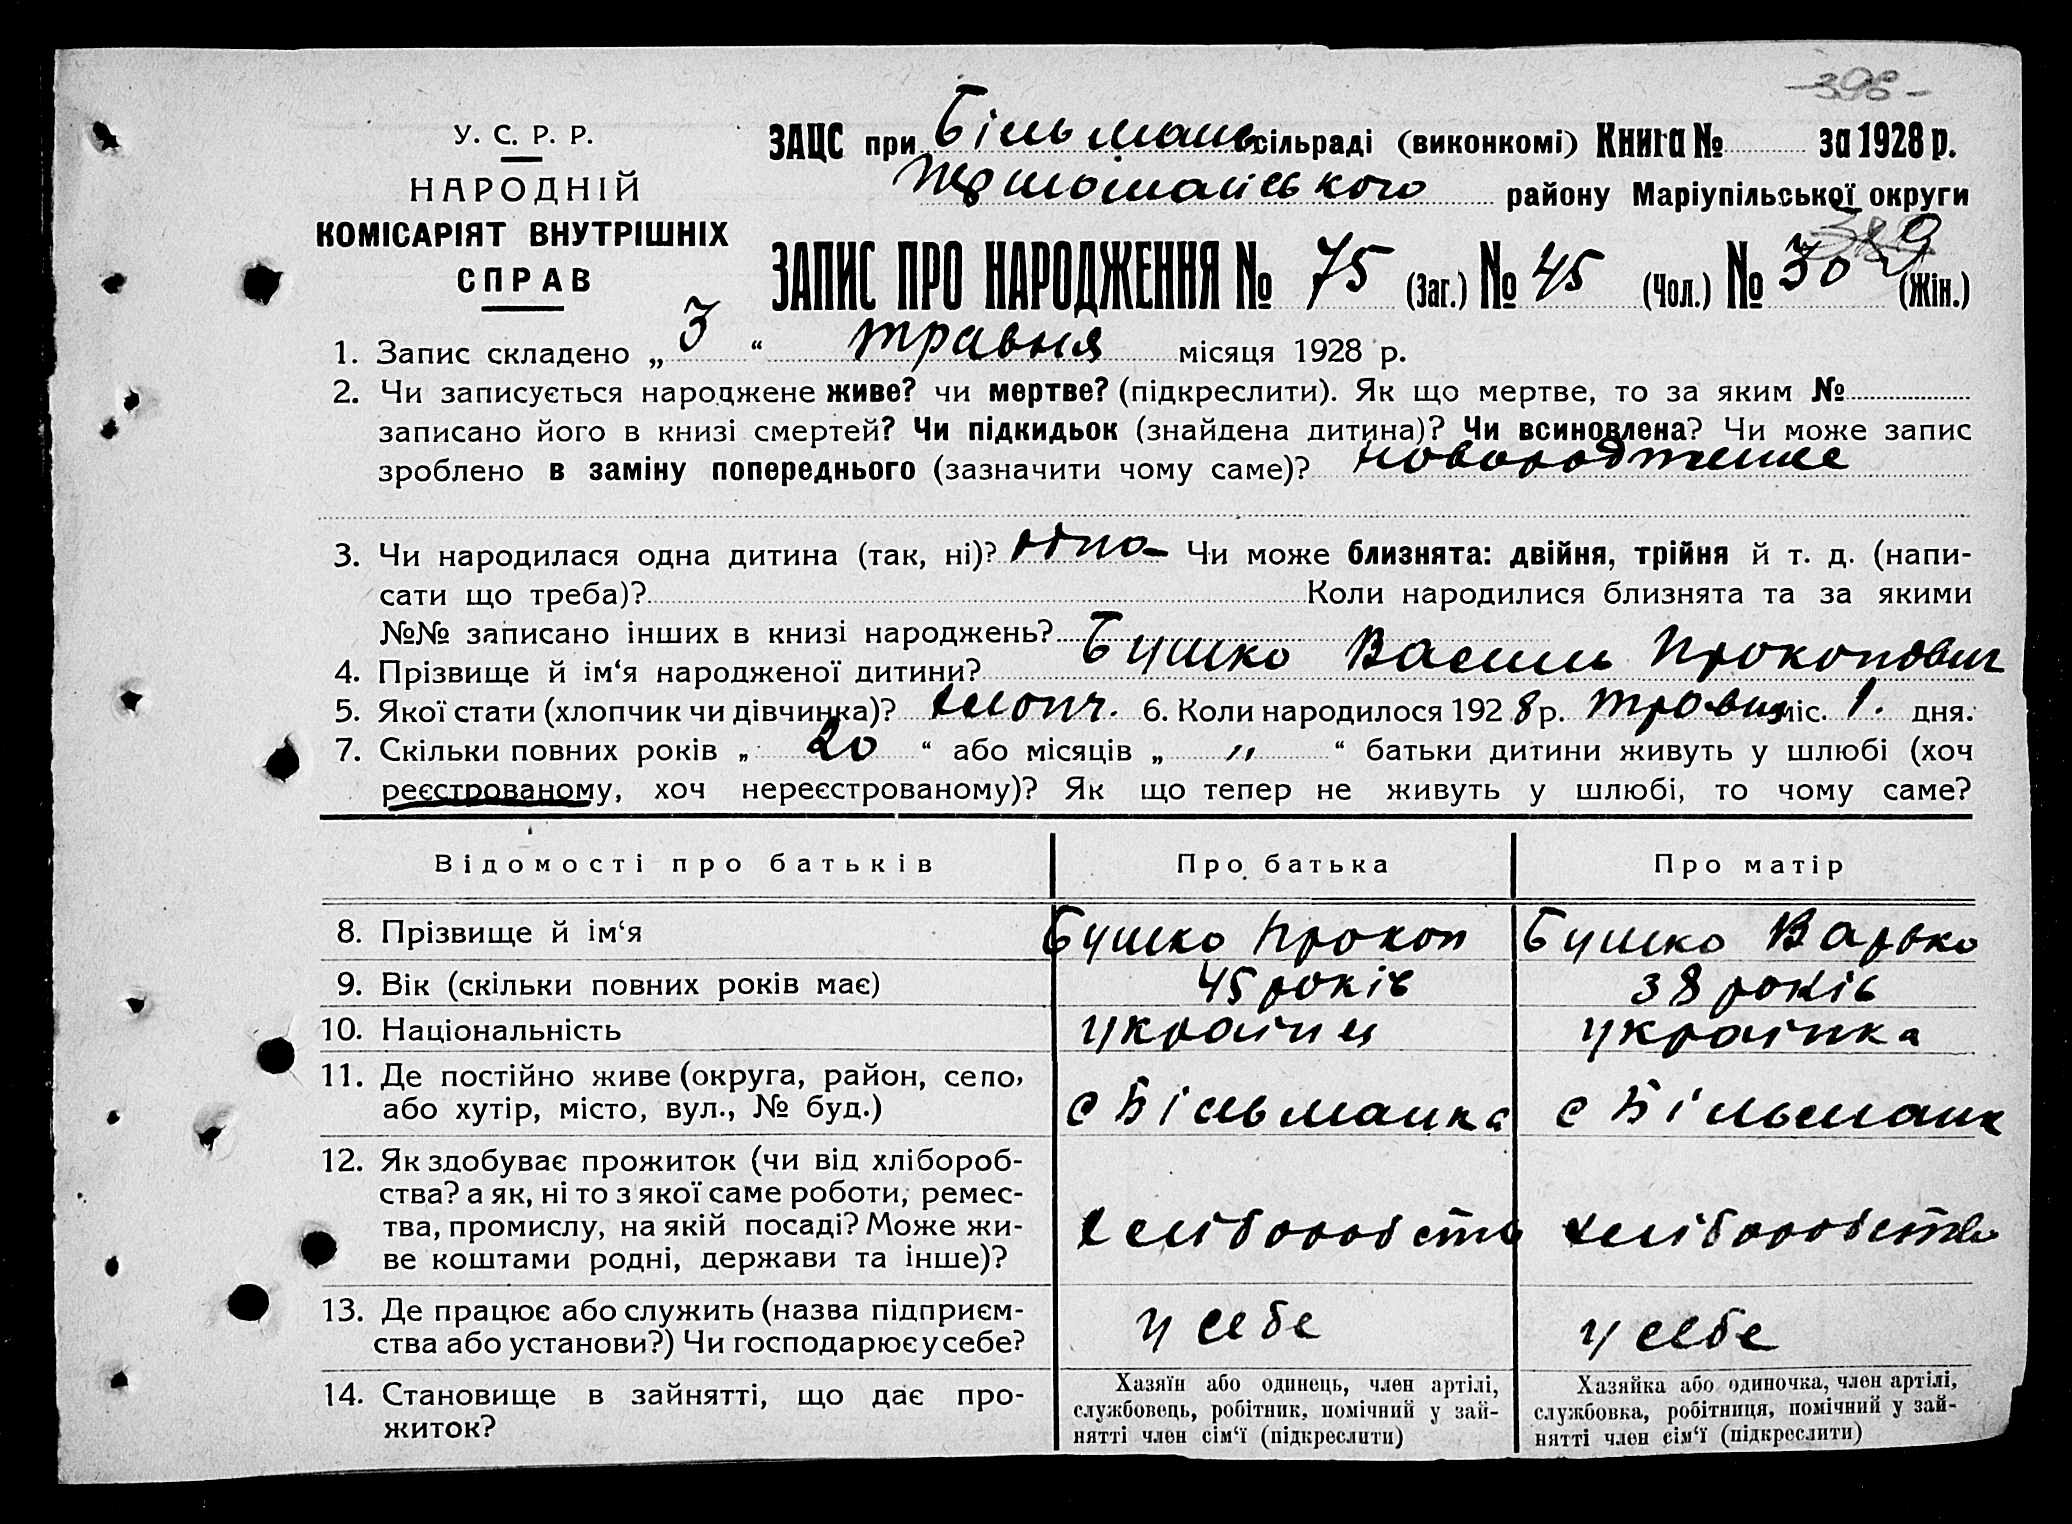 398
У. С. Р. Р.
НАРОДНІЙ
КОМІСАРІЯТ ВНУТРІШНІХ
СПРАВ
ЗАЦС при Більмань сільраді (виконкомі) Книга № за 1928 р.
Першомайського району Маріупільської округи
ЗАПИС ПРО НАРОДЖЕННЯ № 75 (Заг.) № 45 (Чол.) № 30 (Жін.)
1. Запис складено „ 3 “ травня місяця 1928 р.
2. Чи записується народжене живе? чи мертве? (підкреслити). Як що мертве, то за яким №
записано його в книзі смертей? Чи підкидьок (знайдена дитина)? Чи всиновлена? Чи може запис
зроблено в заміну попереднього (зазначити чому саме)? новородженне
3. Чи народилася одна дитина (так, ні)? одна Чи може близнята: двійня, трійня й т. д. (напи-
сати що треба)? Коли народилися близнята та за якими
№№ записано інших в книзі народжень?
4. Прізвище й ім‘я народженої дитини? Бушко Василь Прокопович
5. Якої стати (хлопчик чи дівчинка)? хлопч. 6. Коли народилося 1928 р. травня міс. 1. дня.
7. Скільки повних років „ 20 “ або місяців „ " “ батьки дитини живуть у шлюбі (хоч
реєстрованому, хоч нереєстрованому)? Як що тепер не живуть у шлюбі, то чому саме?
Відомості про батьків Про батька Про матір
8. Прізвище й ім‘я Бушко Прокоп Бушко Варька
9. Вік (скільки повних років має) 45 років 38 років
10. Національність україн­ц українка
11. Де постійно живе (округа, район, село,
або хутір, місто, вул., № буд.) с Більманка с Більманк
12. Як здобуває прожиток (чи від хлібороб-
ства? а як, ні то з якої саме роботи, ремес-
тва, промислу, на якій посаді? Може жи-
ве коштами родні, держави та інше)? хліборобство хліборобство
13. Де працює або служить (назва підприєм-
ства або установи?) Чи господарює у себе? у себе у себе
14. Становище в зайнятті, що дає про-
житок?
Хазяїн або одинець, член артілі,
службовець, робітник, помічний у зай-
нятті член сім‘ї (підкреслити)
Хазяйка або одиночка, член артілі,
службовка, робітниця, помічний у зай-
нятті член сім‘ї (підкреслити)